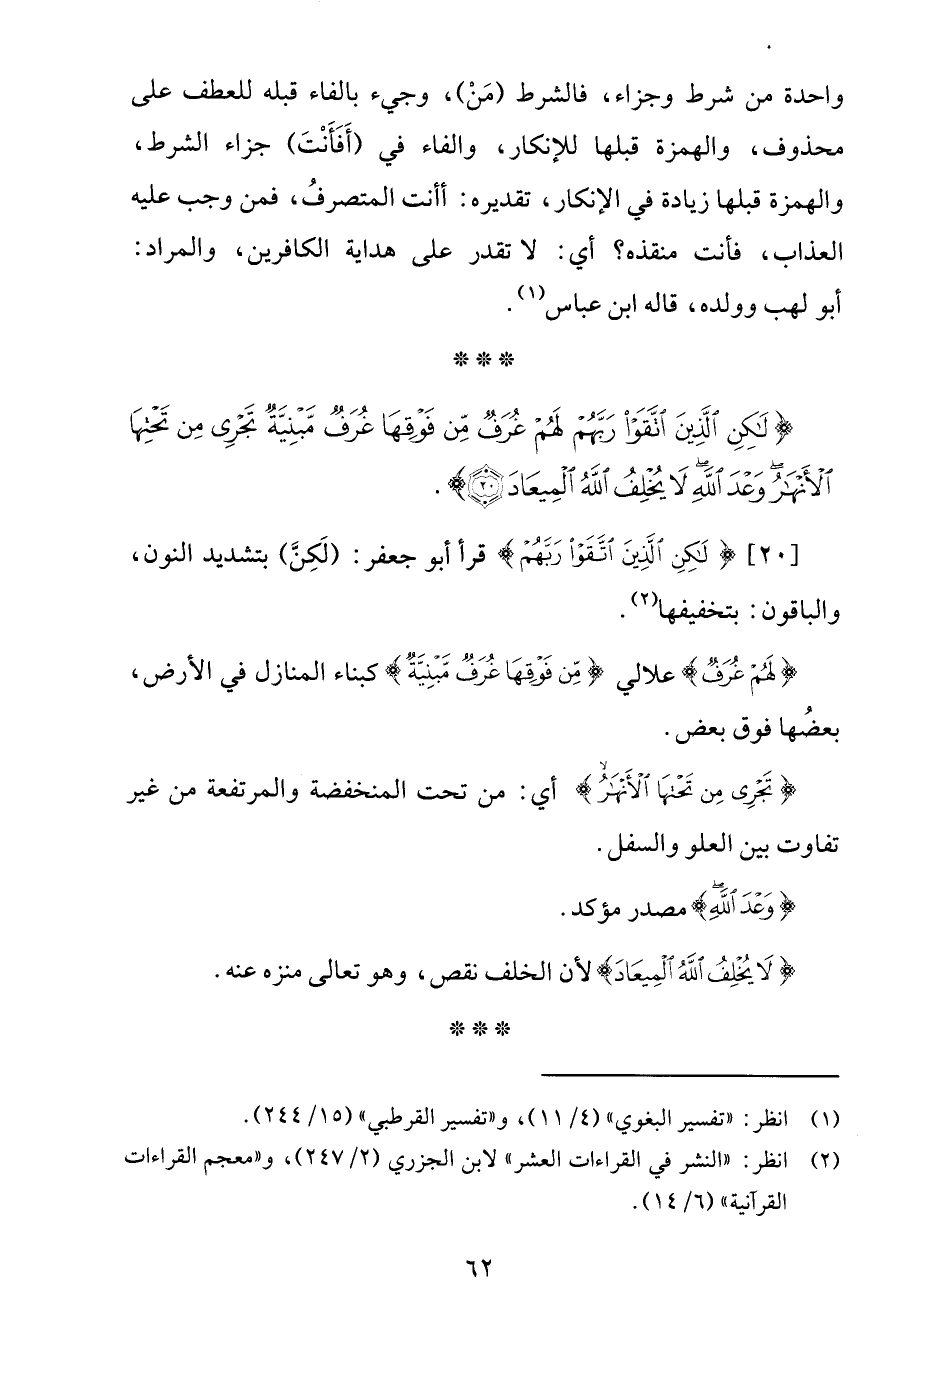 واحدة من شرط وجزاء، فالشرط (مَنْ)، وجيء بالفاء قبله للعطف على
محذوف، والهمزة قبلها للإنكار، والفاء في (أَفَأَنْتَ) جزاء الشرط،
والهمزة قبلها زيادة في الإنكار، تقديره: أأنت المتصرفُ، فمن وجب عليه
العذاب، فأنت منقذه؟ أي: لا تقدر على هداية الكافرين، والمراد:
أبو لهب وولده، قاله ابن عباس(١).
***
﴿لَٰكِنِ ٱلَّذِينَ ٱتَّقَوْا۟ رَبَّهُمْ لَهُمْ غُرَفٌ مِّن فَوْقِهَا غُرَفٌ مَّبْنِيَّةٌ تَجْرِى مِن تَحْتِهَا
ٱلْأَنْهَٰرُ ۖ وَعْدَ ٱللَّهِ ۖ لَا يُخْلِفُ ٱللَّهُ ٱلْمِيعَادَ ٢٠﴾.
[٢٠] ﴿لَٰكِنِ ٱلَّذِينَ ٱتَّقَوْا۟ رَبَّهُمْ﴾ قرأ أبو جعفر: (لَكِنَّ) بتشديد النون،
والباقون: بتخفيفها(٢).
﴿لَهُمْ غُرَفٌ﴾ علالي ﴿مِّن فَوْقِهَا غُرَفٌ مَّبْنِيَّةٌ﴾ كبناء المنازل في الأرض،
بعضُها فوق بعض.
﴿تَجْرِى مِن تَحْتِهَا ٱلْأَنْهَٰرُ ۙ﴾ أي: من تحت المنخفضة والمرتفعة من غير
تفاوت بين العلو والسفل.
﴿وَعْدَ ٱللَّهِ ۖ﴾ مصدر مؤكد.
﴿لَا يُخْلِفُ ٱللَّهُ ٱلْمِيعَادَ﴾ لأن الخلف نقص، وهو تعالى منزه عنه.
***
(١) انظر: «تفسير البغوي» (٤/ ١١)، و«تفسير القرطبي» (١٥/ ٢٤٤).
(٢) انظر: «النشر في القراءات العشر» لابن الجزري (٢/ ٢٤٧)، و«معجم القراءات
القرآنية» (٦/ ١٤).
٦٢